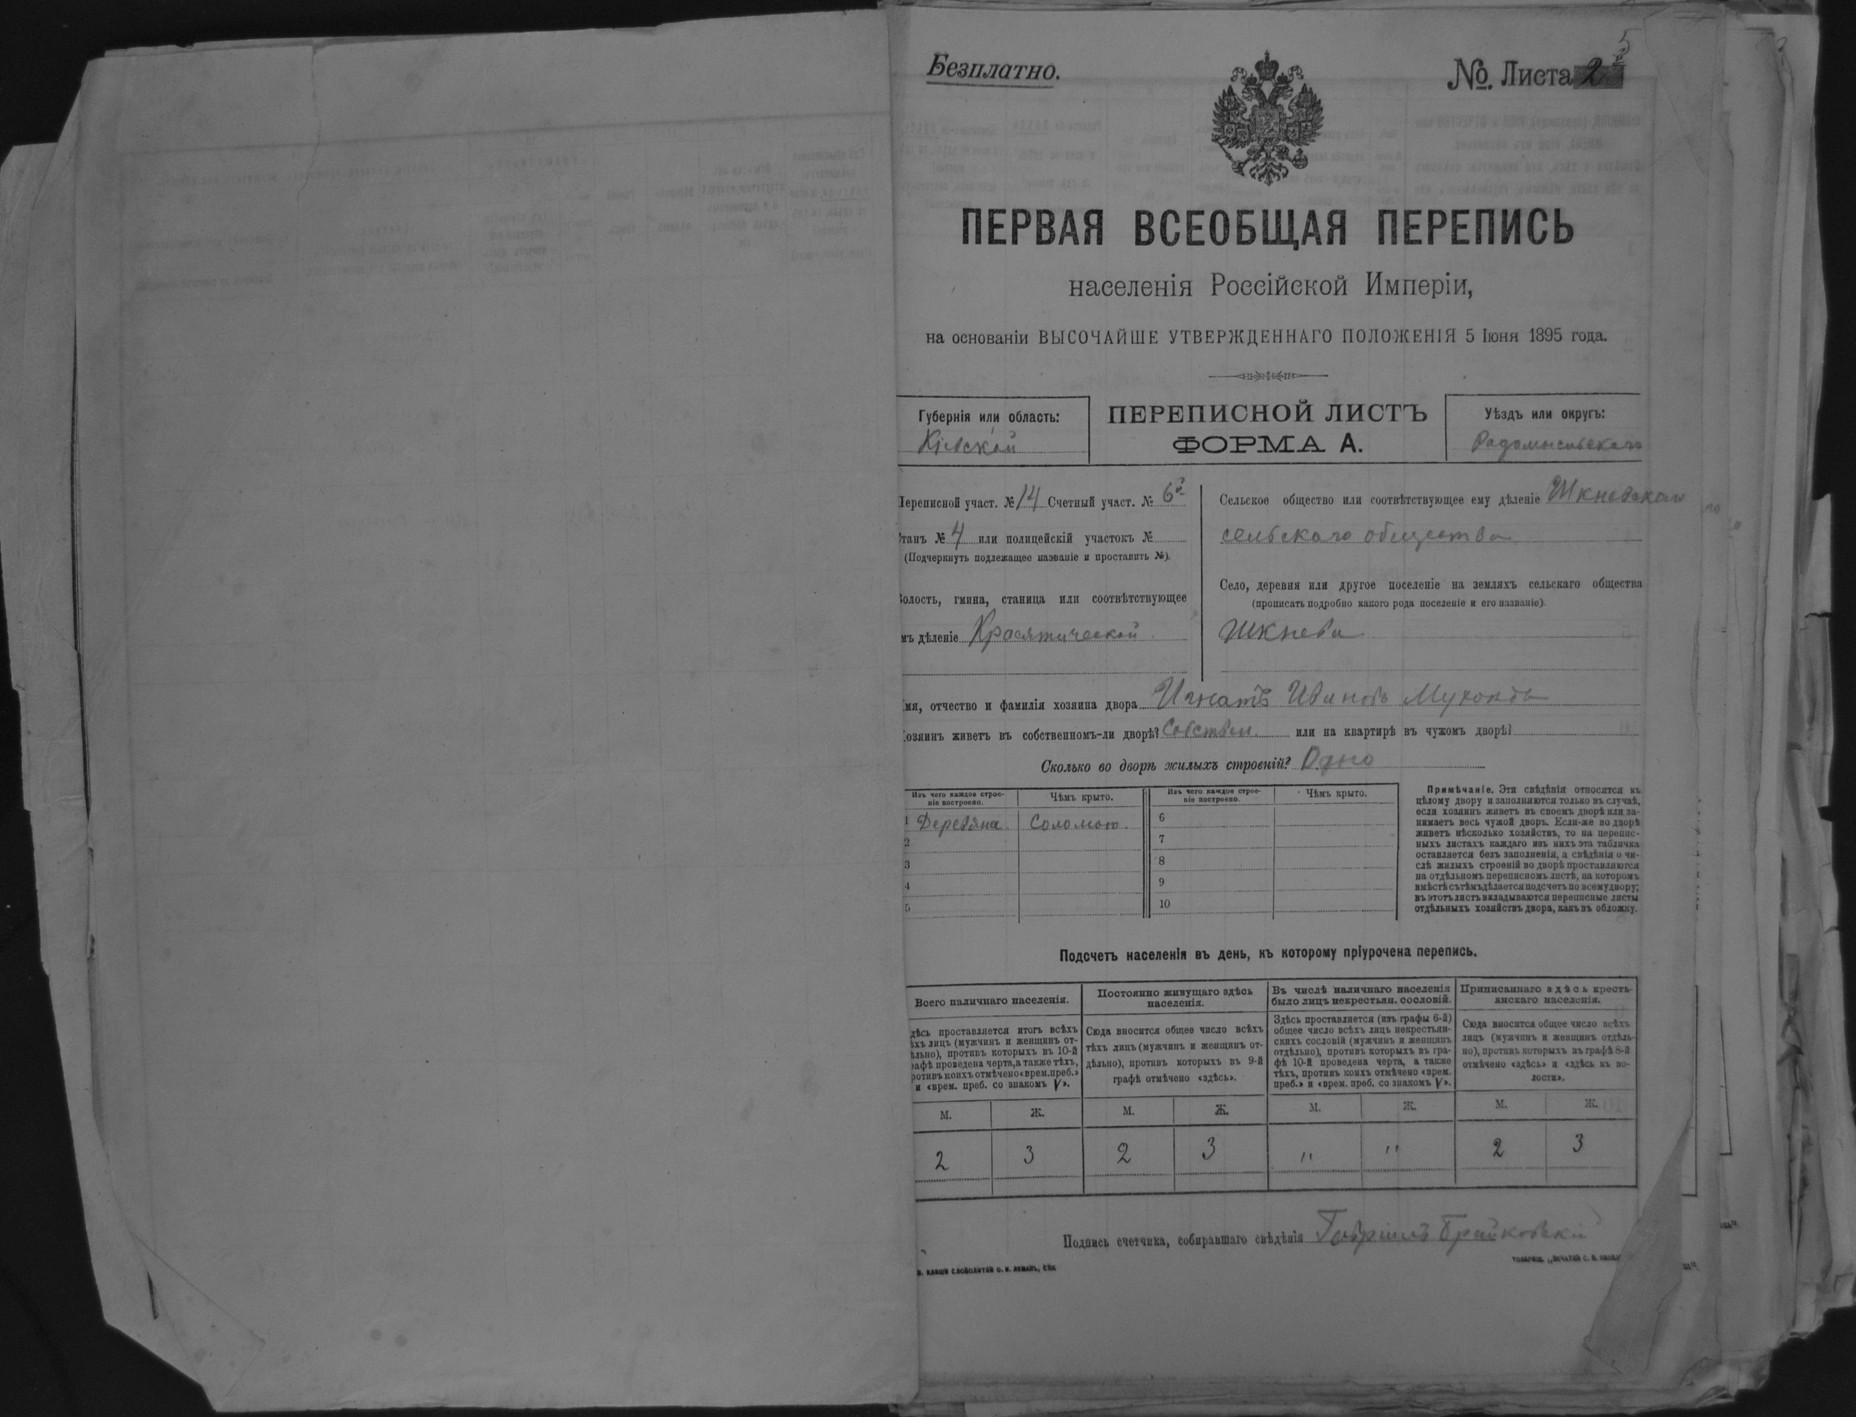 Безплатно.
№. Листа 2
ПЕРВАЯ ВСЕОБЩАЯ ПЕРЕПИСЬ
населенія Россійской Имперіи,
на основаніи ВЫСОЧАЙШЕ УТВЕРЖДЕННАГО ПОЛОЖЕНІЯ 5 Іюня 1895 года.
Губернія или область:
Кіевской
ПЕРЕПИСНОЙ ЛИСТЪ
ФОРМА А.
Уѣздъ или округъ:
Радомысльскаго
Переписной участ. № 14 Счетный участ. № 6й
Станъ № 4 или полицейскій участокъ №
(Подчеркнуть подлежащее названіе и проставить №).
Волость, гмина, станица или соотвѣтствующее
мъ дѣленіе Красятической
Сельское общество или соотвѣтствующее ему дѣленіе Шкневскаго
сельскаго общества
Село, деревня или другое поселеніе на земляхъ сельскаго общества
(прописать подробно какого рода поселеніе и его названіе).
Шкнева
Имя, отчество и фамилія хозяина двора Игнатъ Ивановъ
Хозяинъ живетъ въ собственномъ-ли дворѣ? Собствен. или на квартирѣ въ чужомъ дворѣ?
Сколько во дворѣ жилыхъ строеній? Одно
Изъ чего каждое строе-
ніе построено.
Чѣмъ крыто.
Изъ чего каждое строе-
ніе построено.
Чѣмъ крыто.
1 Деревяна. Соломою. 6
2 7
3 8
4 9
5 10
Примѣчаніе. Эти свѣдѣнія относятся къ
цѣлому двору и заполняются только въ случаѣ,
если хозяинъ живетъ въ своемъ дворѣ или за-
нимаетъ весь чужой дворъ. Если-же во дворѣ
живетъ нѣсколько хозяйствъ, то на перепис-
ныхъ листахъ каждаго изъ нихъ эта табличка
оставляется безъ заполненія, а свѣдѣнія о чи-
слѣ жилыхъ строеній во дворѣ проставляются
на отдѣльномъ переписномъ листѣ, на которомъ
вмѣстѣ съ тѣмъ дѣлается подсчетъ по всему двору;
въ этотъ листъ вкладываются переписные листы
отдѣльныхъ хозяйствъ двора, какъ въ обложку.
Подсчетъ населенія въ день, къ которому пріурочена перепись.
Всего наличнаго населенія.
Здѣсь проставляется итогъ всѣхъ
тѣхъ лицъ (мужчинъ и женщинъ от-
дѣльно), противъ которыхъ въ 10-й
графѣ проведена черта, а также тѣхъ,
противъ коихъ отмѣчено «врем. преб.»
и «врем. преб. со знакомъ V».
Постоянно живущаго здѣсь
населенія.
Сюда вносится общее число всѣхъ
тѣхъ лицъ (мужчинъ и женщинъ от-
дѣльно), противъ которыхъ въ 9-й
графѣ отмѣчено «здѣсь».
Въ числѣ наличнаго населенія
было лицъ некрестьян. сословій.
Здѣсь проставляется (изъ графы 6-й)
общее число всѣхъ лицъ некрестьян-
скихъ сословій (мужчинъ и женщинъ
отдѣльно), противъ которыхъ въ гра-
фѣ 10-й проведена черта, а также
тѣхъ, противъ коихъ отмѣчено «врем.
преб.» и «врем. преб. со знакомъ V».
Приписаннаго здѣсь кресть-
янскаго населенія.
Сюда вносится общее число всѣхъ
лицъ (мужчинъ и женщинъ отдѣль-
но), противъ которыхъ въ графѣ 8-й
отмѣчено «здѣсь» и «здѣсь къ во-
лости».
М. Ж. М. Ж. М. Ж. М. Ж.
2 3 2 3 " " 2 3
Подпись счетчика, собиравшаго свѣдѣнія Гавріилъ